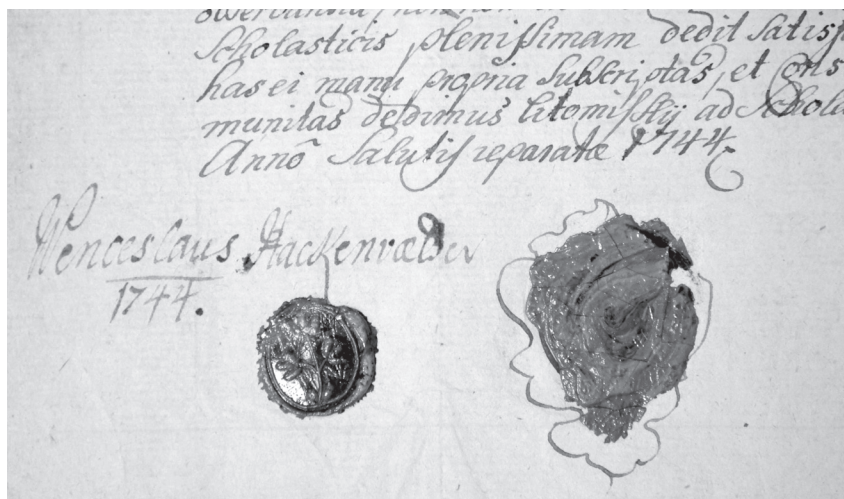 Scholasticis plenissimam dedit Satisf
has ei manu propria Subscriptas, et
munitas dedimus Litomisslÿ ad Schola
Anno Salutis reparatæ 1744.
Wenceslaus Hackenvælder
1744.